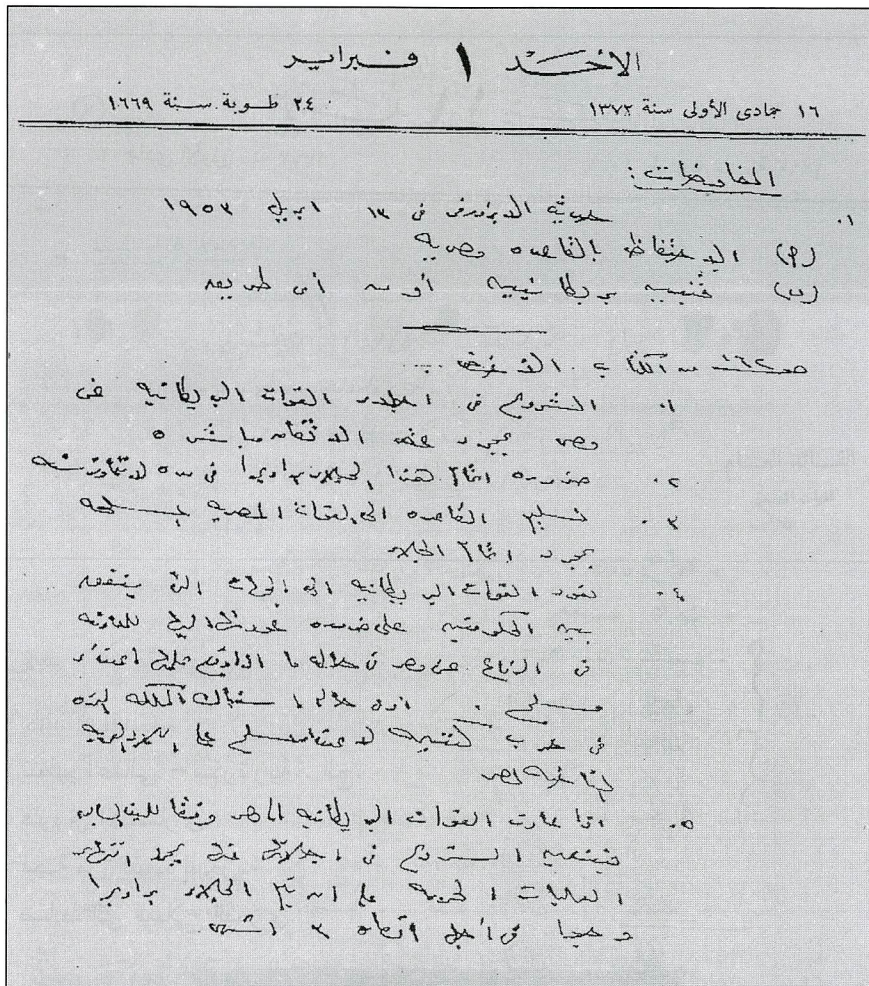 الأحد ١ فبراير
١٦ جمادى الأولى سنة ١٣٧٢ ٢٤ طوبة سنة ١٦٦٩
المفاوضات :
١. حديث فى ١٣ ابريل ١٩٥٣
(٢) الاحتفاظ بالقاعده مصريه
(ب) فنيين بريطانيين أو من أى طريق
صـ ١٦٢ من الكتاب الأبيض ..
١. الشروع فى اجلاء القوات البريطانيه عن
مصر بمجرد عقد الاتفاق مباشره
٢. ضروره اتمام هذا الجلاء برا وبحرا فى مده لا تتجاوز سنه
٣. تسليم القاعده الى القوات المصريه المسلحه
بمجرد اتمام الجلاء
٤. تعود القوات البريطانيه الى الجهات التى يتفق
بين الحكومتين على ضروره عودتها اليها للمعاونه
فى الدفاع عن مصر فى حالة ما اذا وقع عليها اعتداء
مسلح . أو فى حالة اشتباك المملكه المتحده
فى حرب نتيجه لاعتداء مسلح على البلاد العربيه
المتاخمه لمصر
٥. اذا عادت القوات البريطانيه الى مصر وفقا للبند السابق
فيتعين الشروع فى اجلائها عنها بمجرد انتهاء
العمليات الحربيه على ان يتم الجلاء برا وبحرا
وجوا فى أجل أقصاه ٣ اشهر